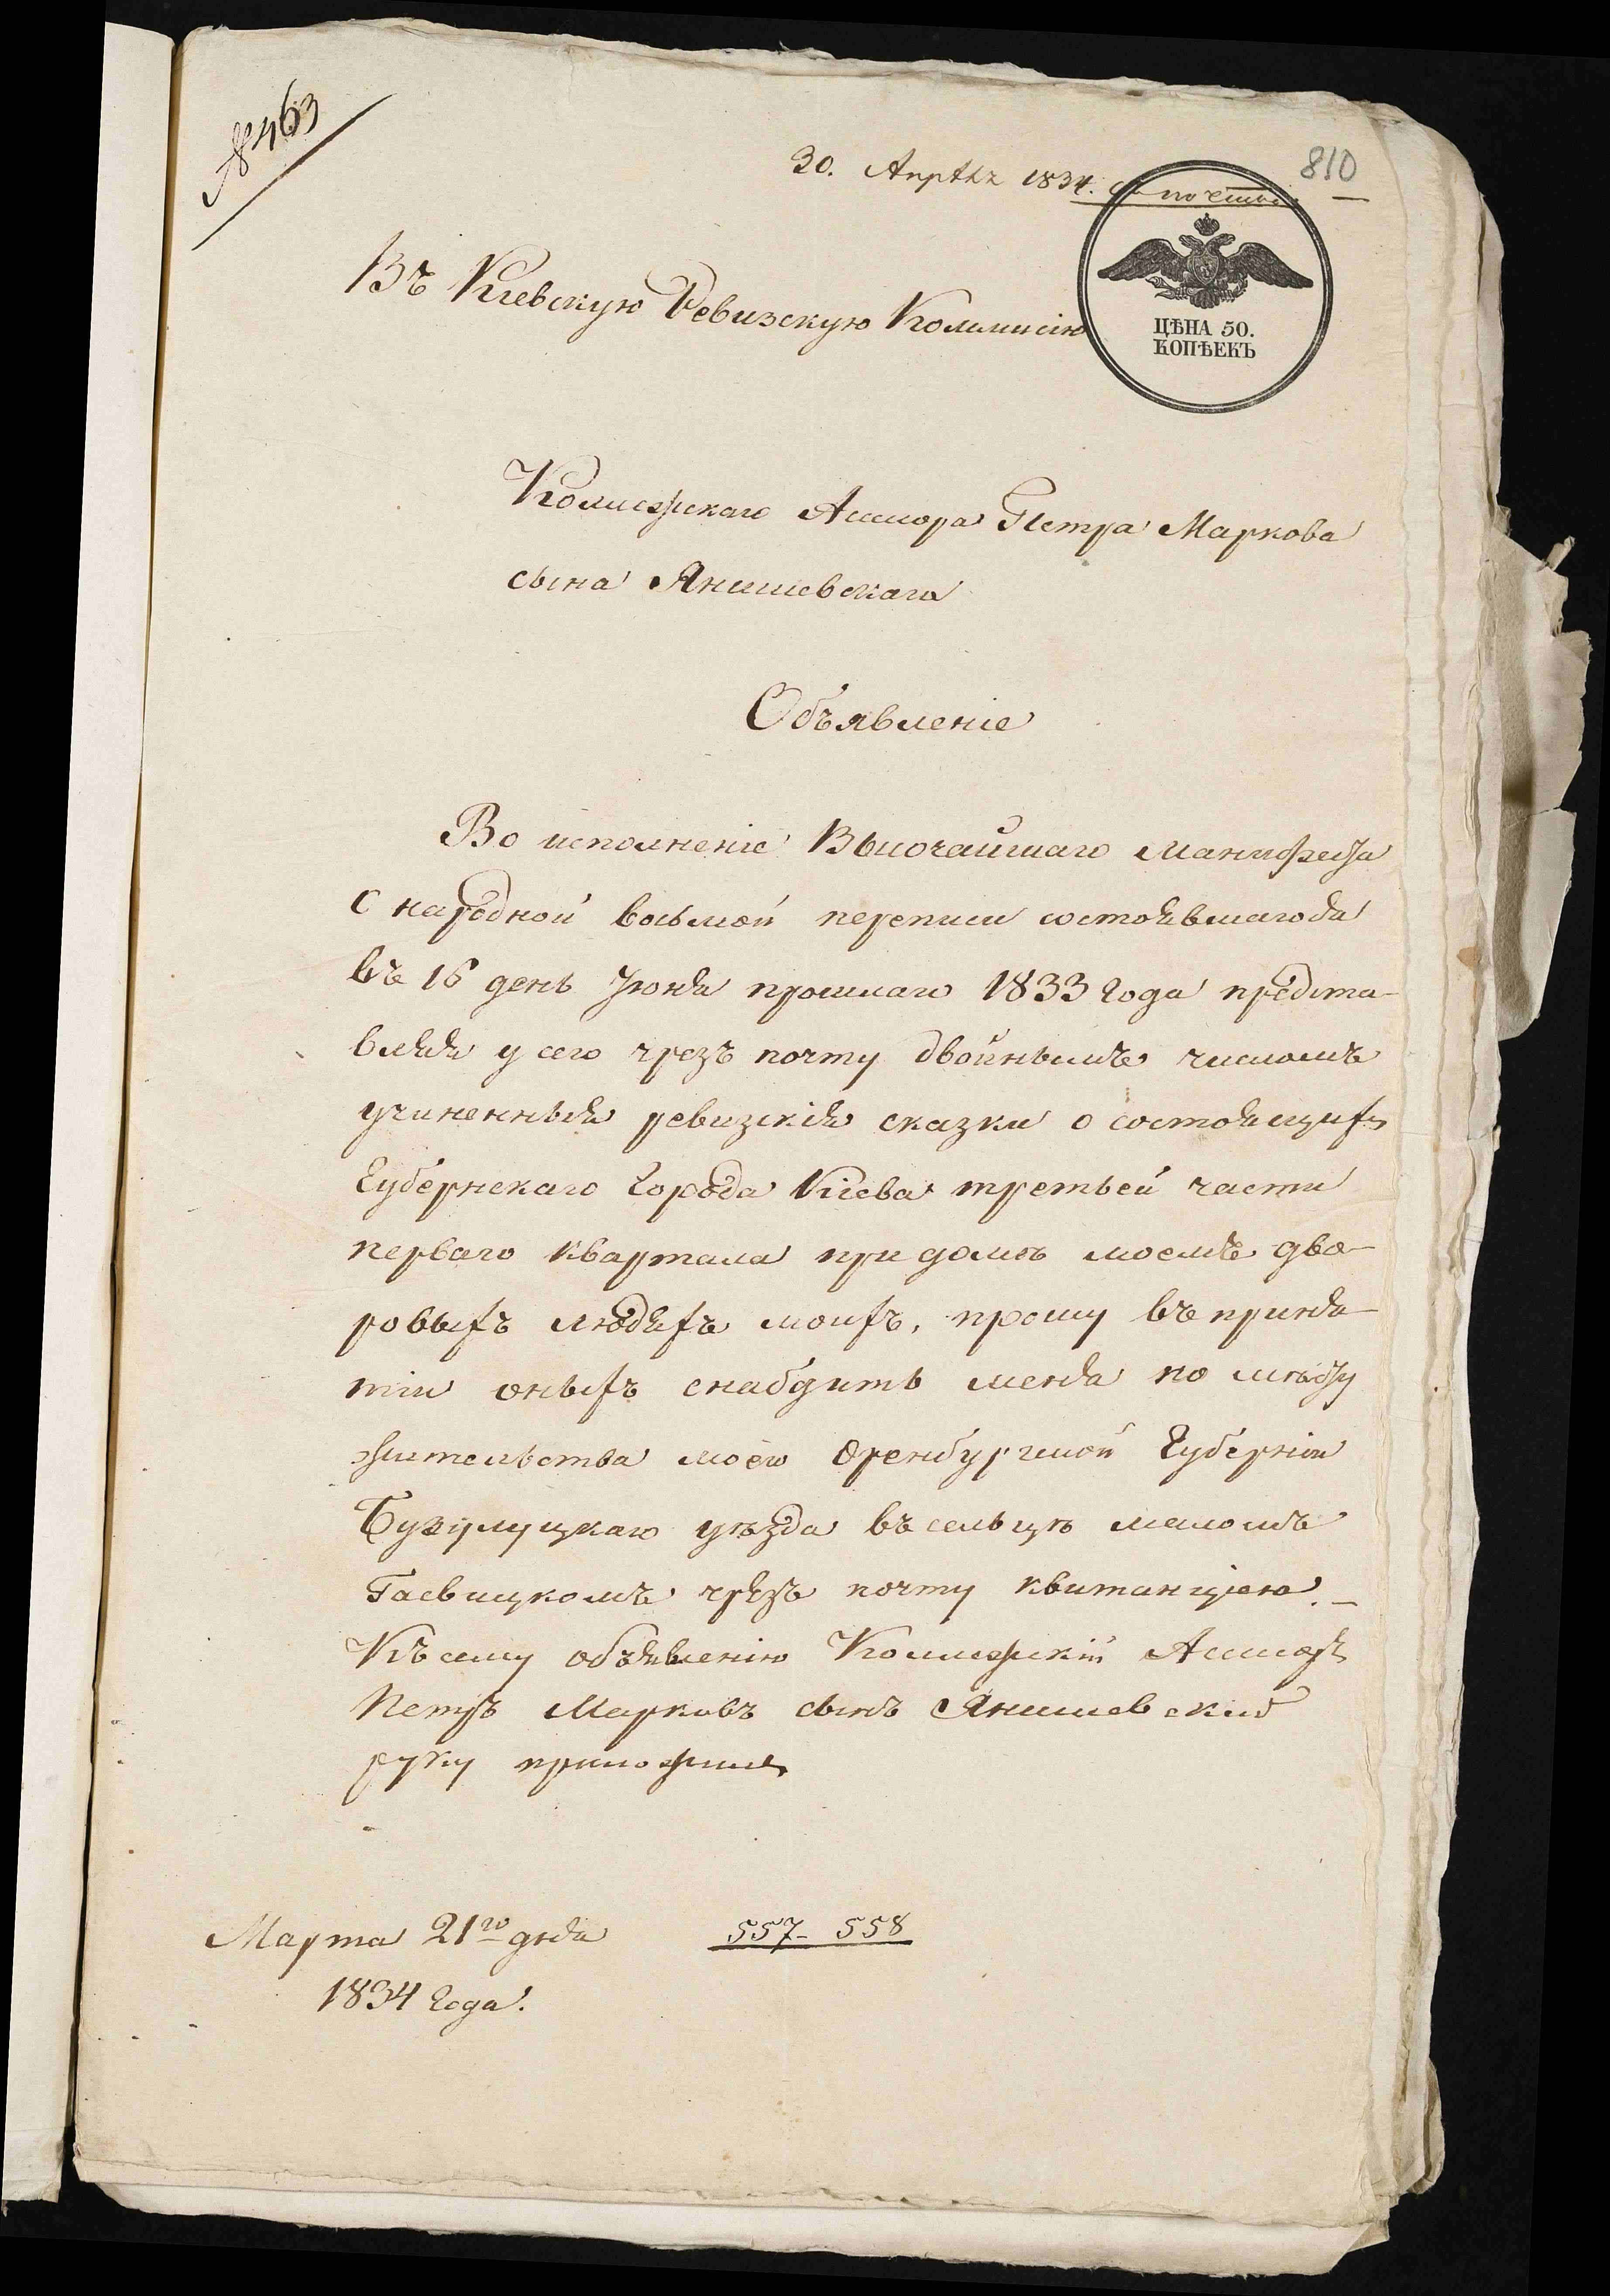 № 463
810
30. Апрѣля 1834. съ почты
Въ Кіевскую Ревизскую Коммисію
ЦѢНА 50.
КОПѢЕКЪ
Колежскаго Ассесора Петра Маркова
сына Янишевскаго
Объявленіе
Во исполненіе Высочайшаго манифеста
о народной восьмой переписи состоявшагося
въ 16 день Іюня прошлаго 1833 года предста-
вляя у сего чрезъ почту двойнымъ числомъ
учиненныя ревизскія сказки о состоящихъ
Губернскаго города Кіева третьей части
перваго квартала при домѣ моемъ дво-
ровыхъ людяхъ моихъ, прошу въ приня-
тіи оныхъ снабдить меня по мѣсту
жительства моего Оренбургской Губерніи
Бузулуцкаго уѣзда въ сельцѣ маломъ
Гаевицкомъ чрезъ почту квитанціею.
Къ сему объявленію Коллежскій Ассесоръ
Петръ Марковъ сынъ Янишевский
руку приложилъ
Марта 21го дня
557- 558
1834 года.